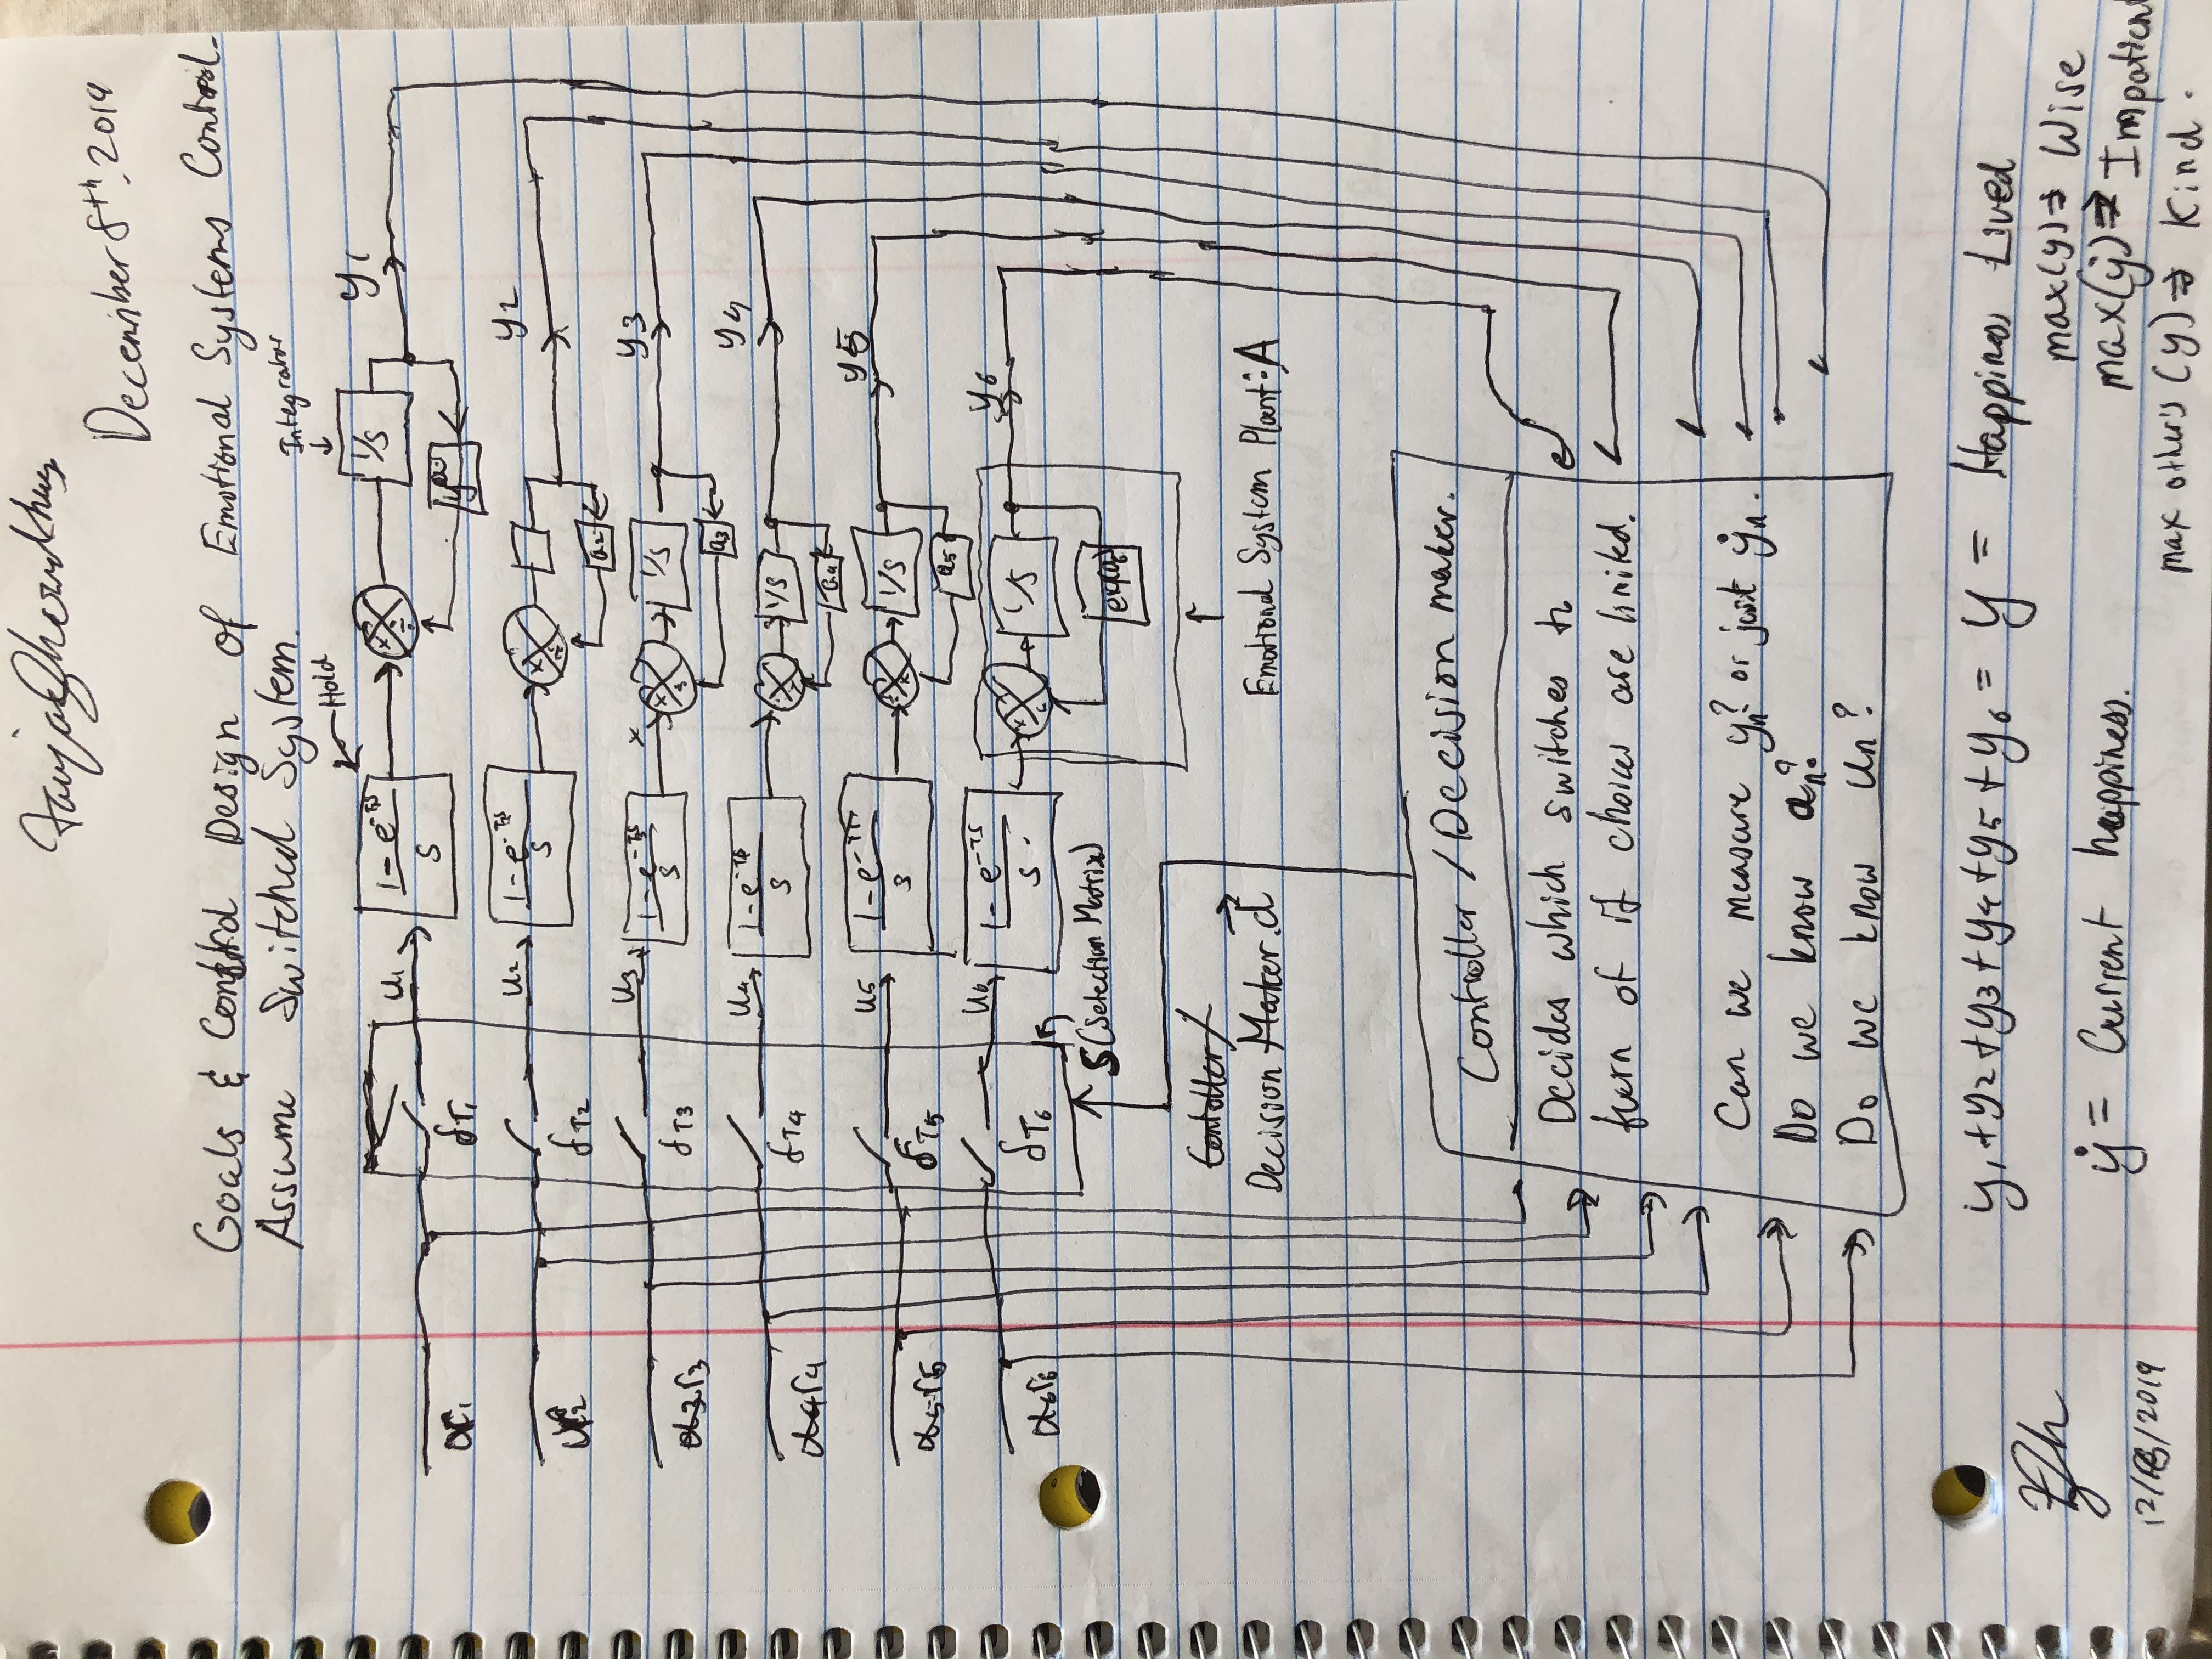 December 8th, 2019
Goals & Control Design of Emotional Systems Control.
Assume Switched System.
Integrator
Hold
u1
1-e^-Ts
s
1/s
y1
δT1
u2
1-e^-Ts
s
y2
δT2
a2
u3
1-e^-Ts
s
1/s
y3
r3
δT3
a3
u4
1-e^-Ts
s
1/s
y4
r4
δT4
a4
u5
1-e^-Ts
s
1/s
y5
r5
δT5
a5
u6
1-e^-Ts
s.
1/s
y6
r6
δT6
S(Selection Matrix)
Contoller/
Decision Maker.d
Emotional System Plant: A
Controller / Decision maker.
Decides which switches to
turn of if choices are limited.
Can we measure yn? or just ẏn.
Do we know an?
Do we know un?
y1+y2+y3+y4+y5+y6 = y = Happiness Lived
max(y) ⇒ Wise
ẏ = Current happiness.
max(ẏ) ⇒ Impatient
max other's (y) ⇒ Kind.